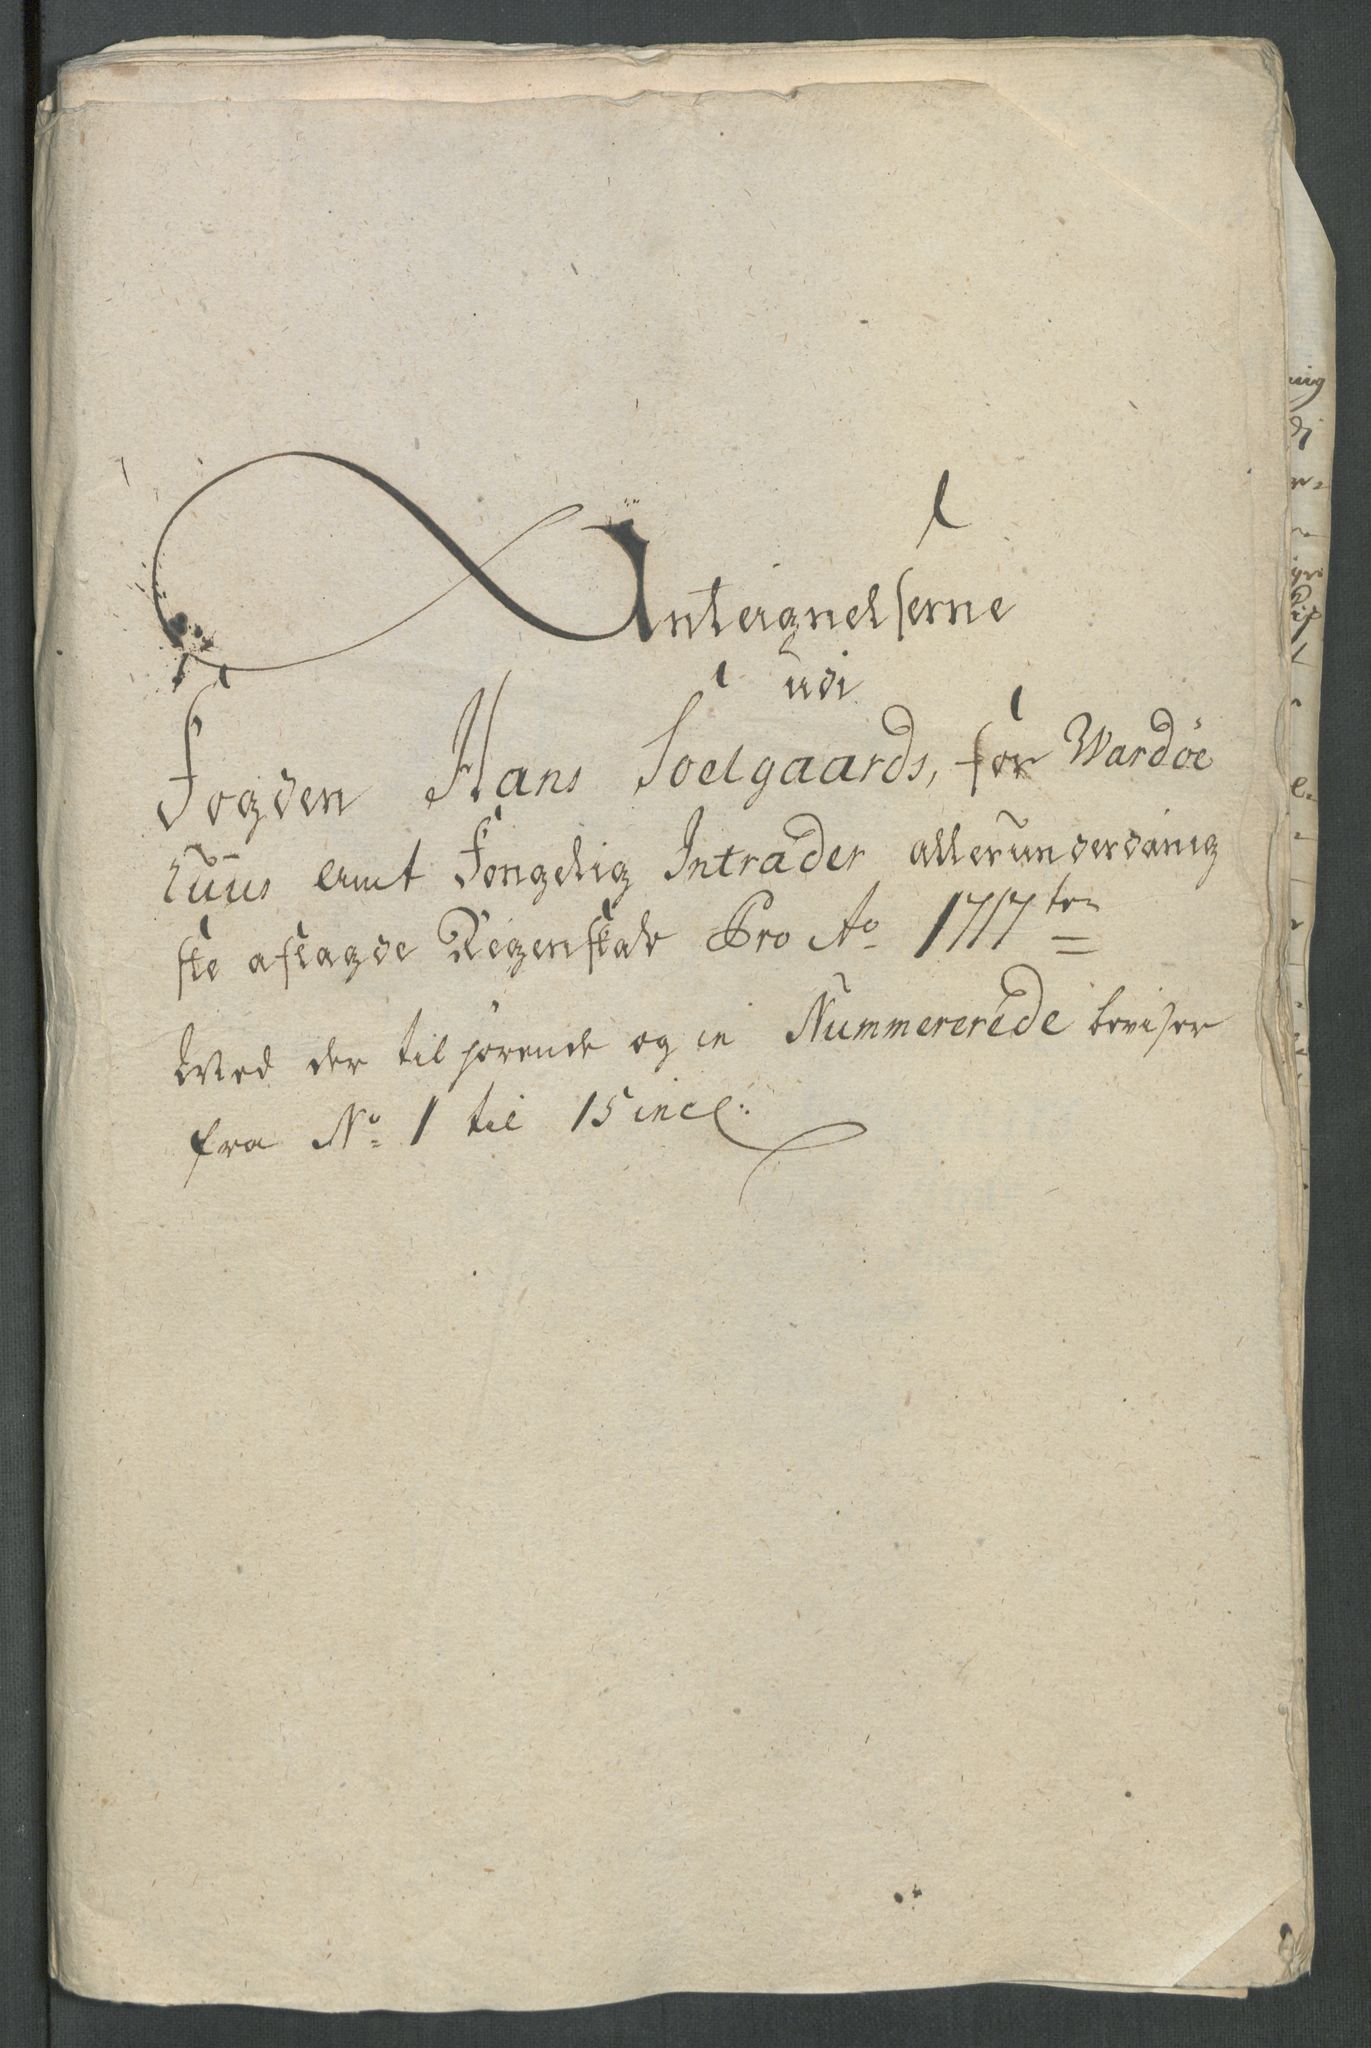 Anteignelserne
udi
Fogden Hans Soelgaards, for Wardöe
Huus Amt Kongelig Intrader allerunderdanig
ste aflagde Regenskab Pro Ao 1717ten
Med der til hörende og in Nummererede beviser
fra No 1 til 15 incl: